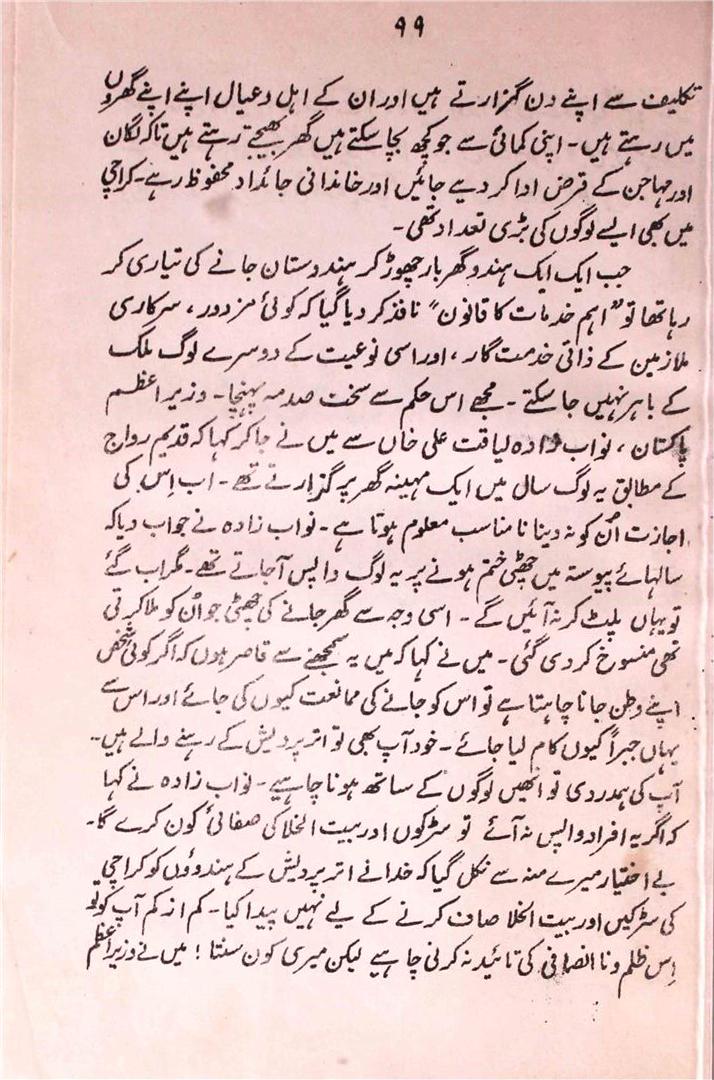 ۹۹
تکلیف سے اپنے دن گزارتے ہیں اور ان کے اہل و عیال اپنے اپنے گھروں
میں رہتے ہیں۔ اپنی کمائی سے جو کچھ بچا سکتے ہیں گھر بھیجتے رہتے ہیں تاکہ لگان
اور مہاجن کے قرض ادا کر دیے جائیں اور خاندانی جائداد محفوظ رہے۔ کراچی
میں بھی ایسے لوگوں کی بڑی تعداد تھی۔
جب ایک ایک ہندو گھر بار چھوڑ کر ہندوستان جانے کی تیاری کر
رہا تھا تو "اہم خدمات کا قانون" نافذ کر دیا گیا کہ کوئی مزدور، سرکاری
ملازمین کے ذاتی خدمت گار، اور اسی نوعیت کے دوسرے لوگ ملک
کے باہر نہیں جا سکتے۔ مجھے اس حکم سے سخت صدمہ پہنچا۔ وزیر اعظم
پاکستان، نواب زادہ لیاقت علی خاں سے میں نے جا کر کہا کہ قدیم رواج
کے مطابق یہ لوگ سال میں ایک مہینہ گھر پر گزارتے تھے۔ اب اِس کی
اجازت اُن کو نہ دینا نا مناسب معلوم ہوتا ہے۔ نواب زادہ نے جواب دیا کہ
سالہائے پیوستہ میں چھٹی ختم ہونے پر یہ لوگ واپس آ جاتے تھے۔ مگر اب گئے
تو یہاں پلٹ کر نہ آئیں گے۔ اسی وجہ سے گھر جانے کی چھٹی جو اُن کو ملا کرتی
تھی منسوخ کر دی گئی۔ میں نے کہا کہ میں یہ سمجھنے سے قاصر ہوں کہ اگر کوئی شخص
اپنے وطن جانا چاہتا ہے تو اس کو جانے کی ممانعت کیوں کی جائے اور اس سے
یہاں جبراً کیوں کام لیا جائے۔ خود آپ بھی تو اتر پردیش کے رہنے والے ہیں۔
آپ کی ہمدردی تو انھیں لوگوں کے ساتھ ہونا چاہیے۔ نواب زادہ نے کہا
کہ اگر یہ افراد واپس نہ آئے تو سڑکوں اور بیت الخلا کی صفائی کون کرے گا۔
بے اختیار میرے منہ سے نکل گیا کہ خدا نے اتر پردیش کے ہندوؤں کو کراچی
کی سڑکیں اور بیت الخلا صاف کرنے کے لیے نہیں پیدا کیا۔ کم از کم آپ کو تو
اِس ظلم و نا انصافی کی تائید نہ کرنی چاہیے لیکن میری کون سنتا! میں نے وزیر اعظم